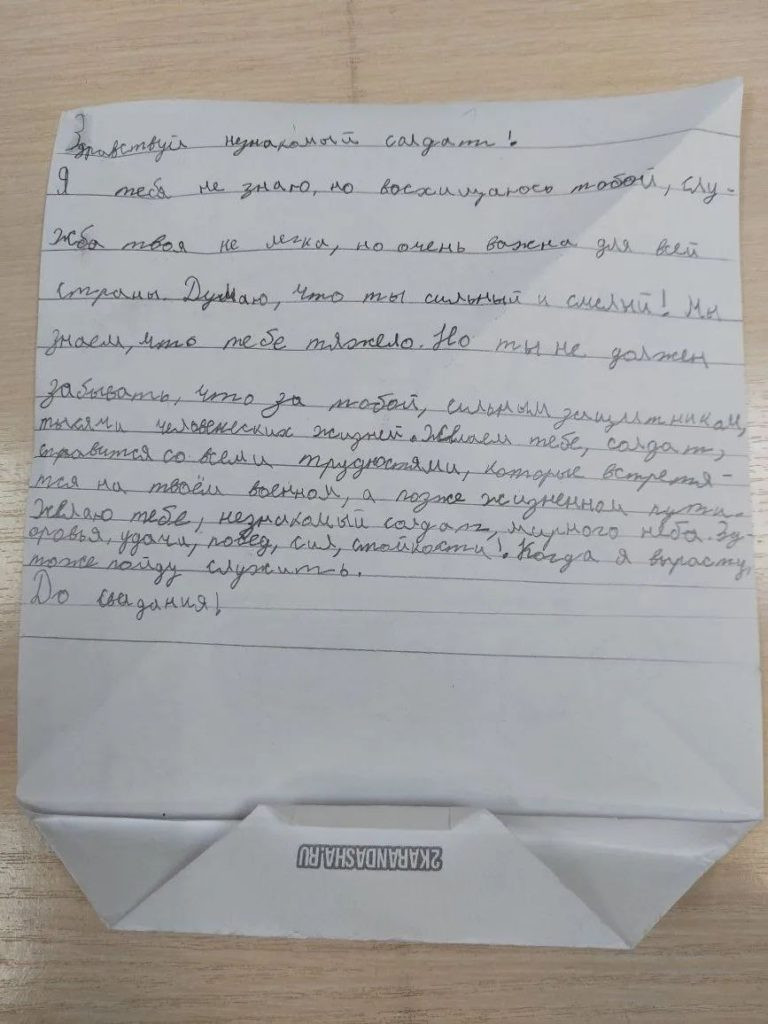 Здравствуй незнакомый солдат!
Я тебя не знаю, но восхищаюсь тобой, слу-
жба твоя не легка, но очень важна для всей
страны. Думаю, что ты сильный и смелый! Мы
знаем, что тебе тяжело. Но ты не должен
забывать, что за тобой, сильным защитником,
тысячи человеческих жизней. Желаем тебе, солдат,
справится со всеми трудностями, которые встретя-
тся на твоём военном, а позже жизненном пути.
Желаю тебе, незнакомый солдат, мирного неба. Зд-
оровья, удачи, побед, сил, стойкости! Когда я вырасту,
тоже пойду служить.
До свидания!
2KARANDASHA.RU